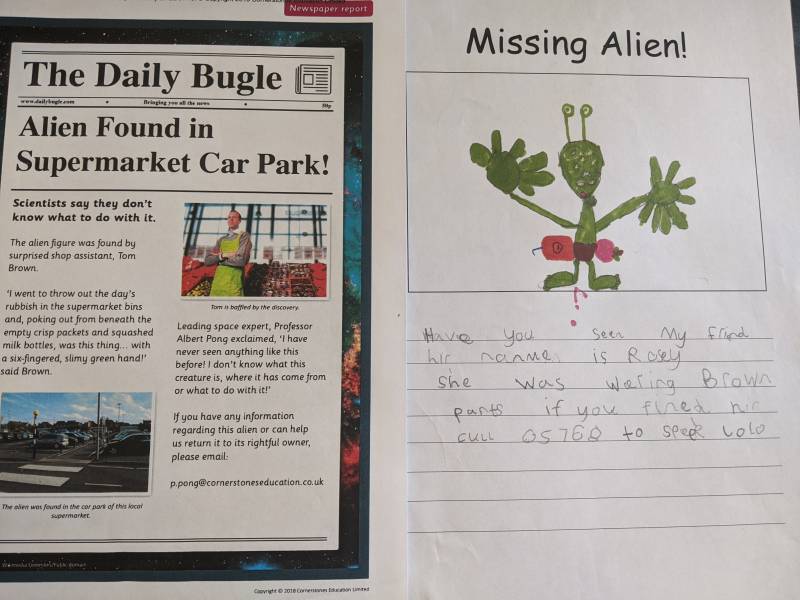 Newspaper report
The Daily Bugle
www.dailybugle.com • Bringing you all the news • 50p
Alien Found in
Supermarket Car Park!
Scientists say they don't
know what to do with it.
The alien figure was found by
surprised shop assistant, Tom
Brown.
'I went to throw out the day's
rubbish in the supermarket bins
and, poking out from beneath the
empty crisp packets and squashed
milk bottles, was this thing... with
a six-fingered, slimy green hand!'
said Brown.
The alien was found in the car park of this local
supermarket.
Tom is baffled by the discovery.
Leading space expert, Professor
Albert Pong exclaimed, 'I have
never seen anything like this
before! I don't know what this
creature is, where it has come from
or what to do with it!'
If you have any information
regarding this alien or can help
us return it to its rightful owner,
please email:
p.pong@cornerstoneseducation.co.uk
Copyright © 2018 Cornerstones Education Limited
Missing Alien!
Have you seen My frind
hir nanme is Rosey
she was Wering Brown
pants if you fined hir
cull 05760 to speek